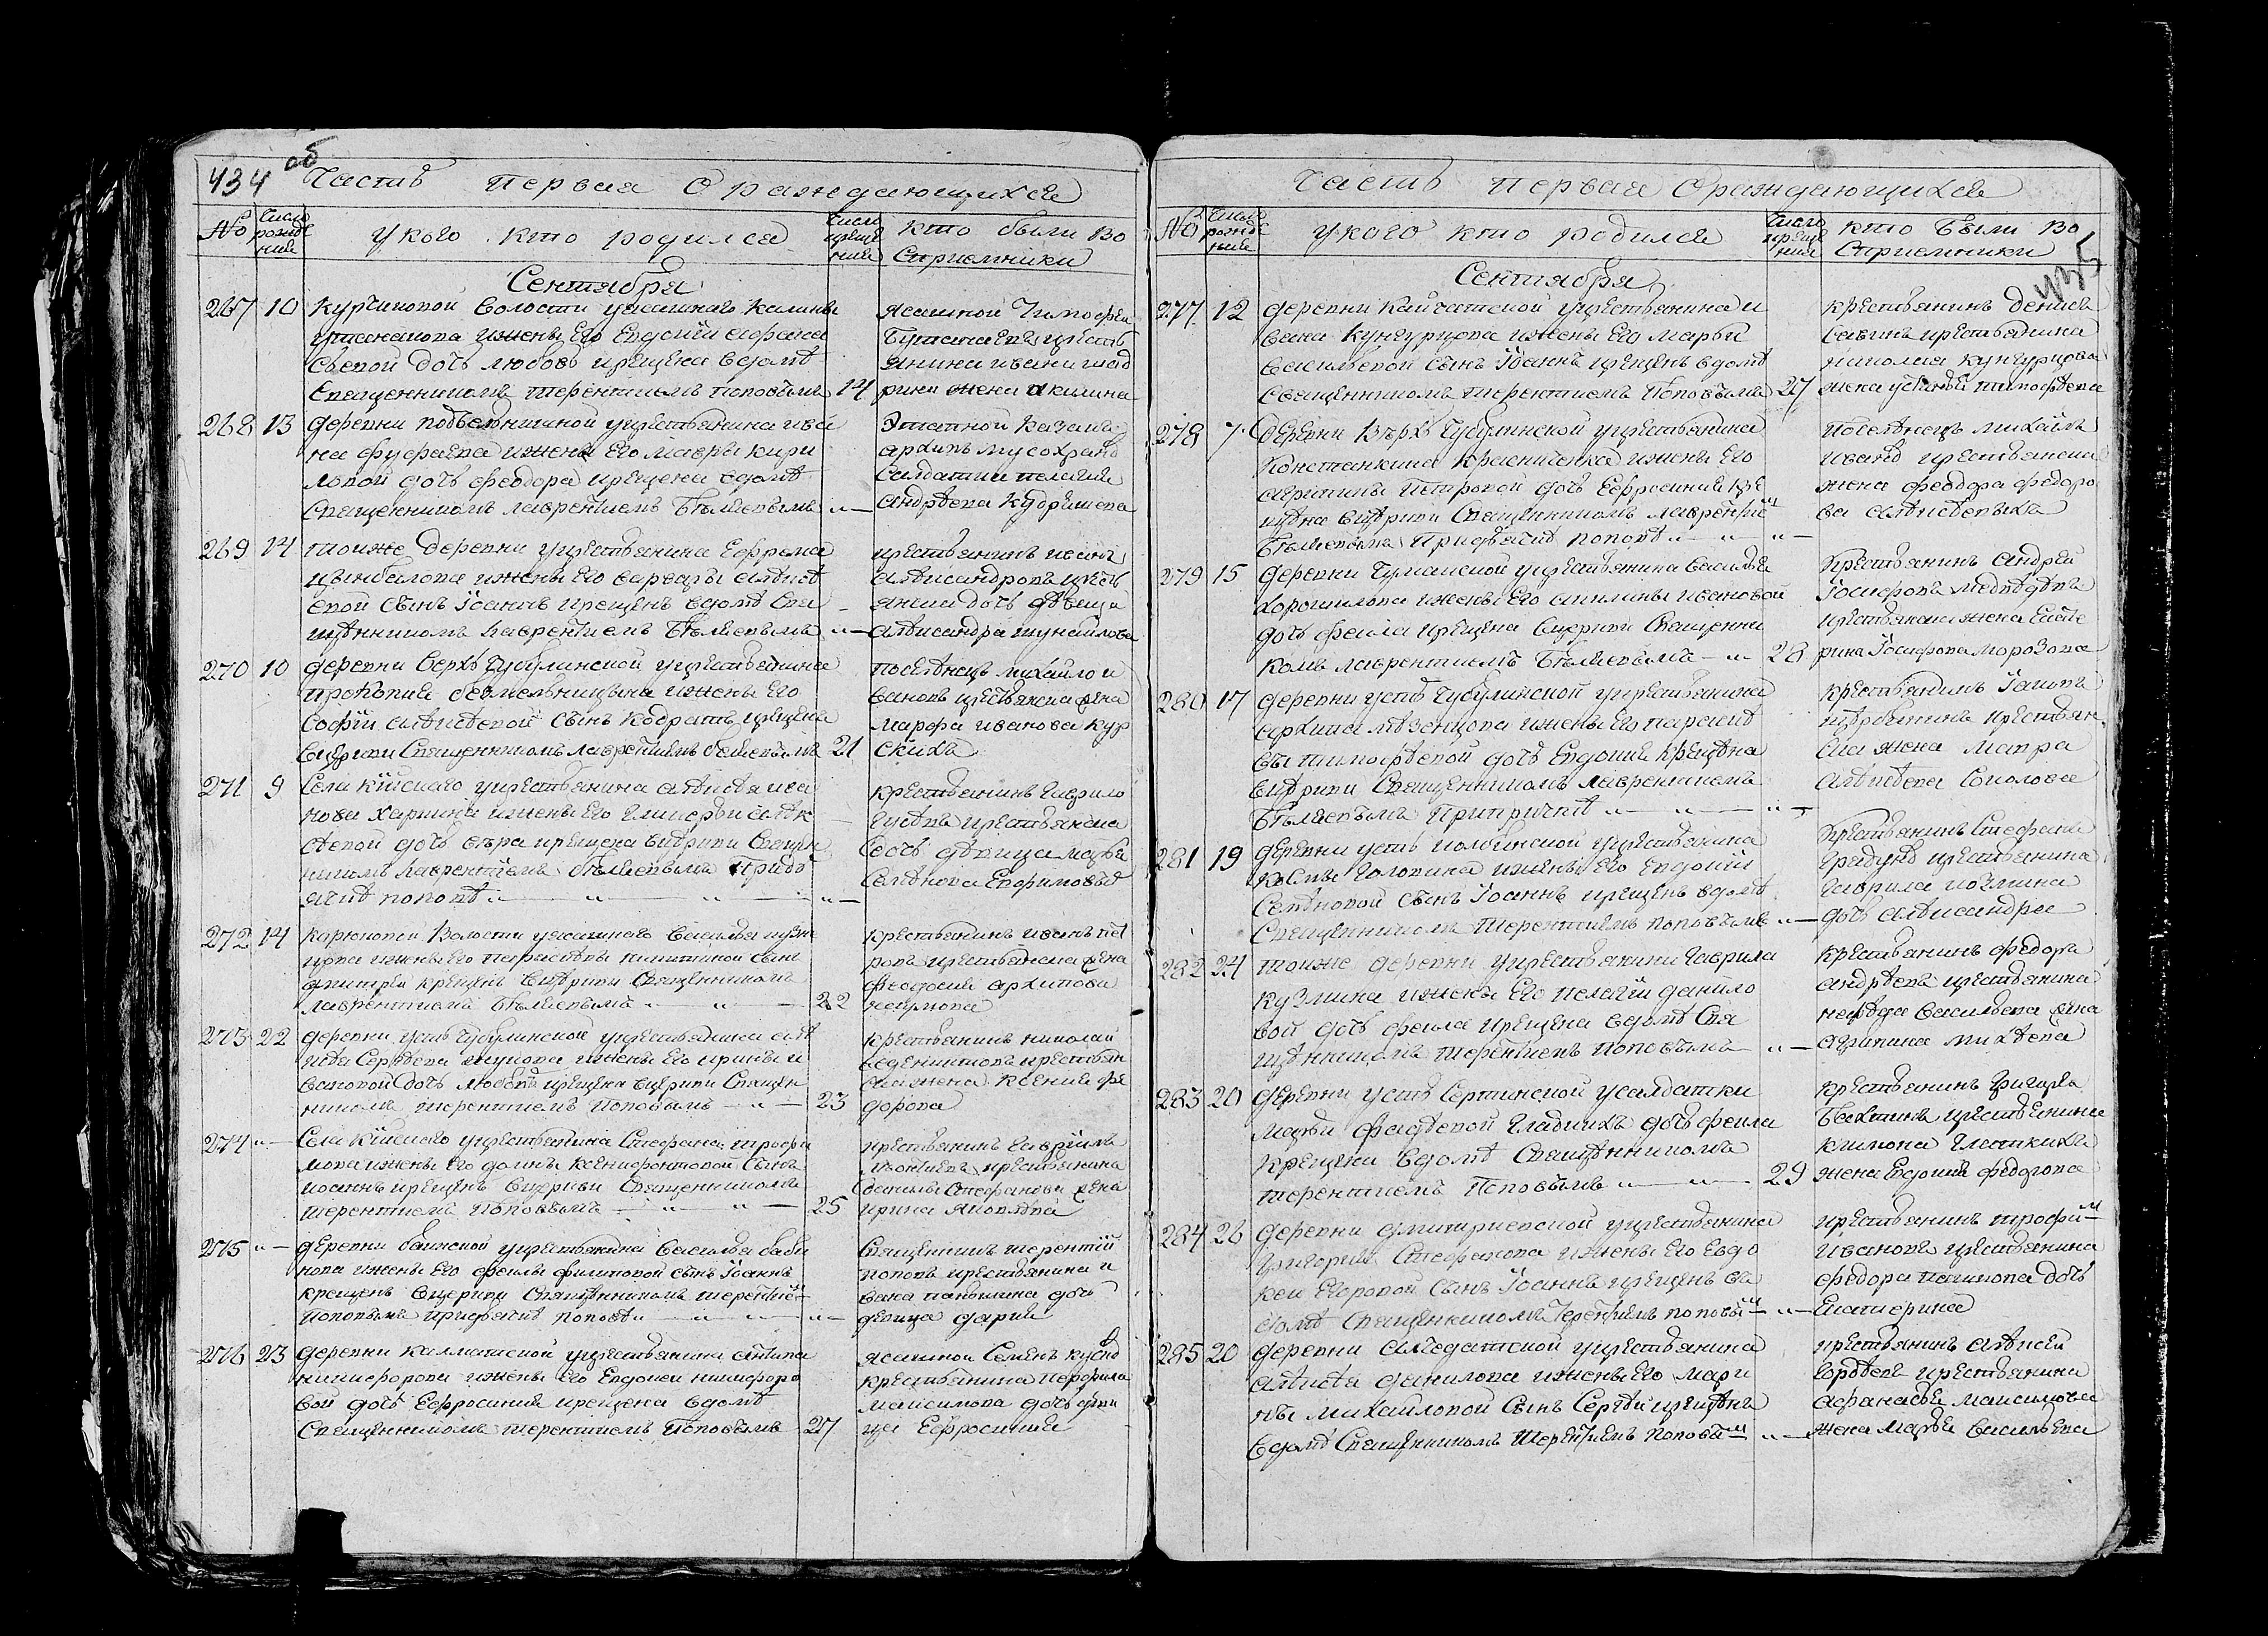 434 об
Часть первая О раждающихся
№ Число рожде ния
у кого кто родился
Число креще ния
кто были во
сприемники
Сентября
267 10 Курчиковой волости уясашнаго Калины
жены Его Евдокии Афана
сьевой дочь Любовь крещена вдомѣ
Священникомъ терентиемъ поповымъ 14
Ясашной Тимофеи
жена Акилина
268 13 деревни подъельнишной укрестьянина ива
на фусраева ижены Его мавры кири
ловой дочь феодора крещена вдомѣ
Священникомъ лаврентиемъ Бѣляевымъ „—
Этатной казакъ
архипъ
Салдатки пелагия
андрѣева Кудряшева
269 14 тоиже деревни укрестьянина Ефрема
Цынбалова ижены Его варвары алѣксѣ
евой Сынъ Іоаннъ крещенъ вдомѣ Свя
щѣнникомъ лаврентиемъ Бѣляевымъ „—
крестьянинъ иванъ
алѣксандровъ крѣсть
янска дочь дѣвица
алѣксандра
270 10 деревни Верхъ Чубулинской укрестьянина
прокопия безмельницына ижены Его
Софии алѣксѣевой Сынъ Кодратъ крещенъ
вцеркви Священникомъ лаврентиемъ бѣляевымъ 21
поселѣнецъ михайло и
вановъ крестьянска жена
марфа иванова кур
скихъ
271 9 Села Кійскаго укрестьянина алѣксѣя ива
нова Харина ижены Его Гликерьи алѣкс
ѣевой дочь вѣра крещена вцеркви Священ
никомъ лаврентіемъ Бѣляевымъ придь
ячкѣ поповѣ „— „— „— „—
крестьянинъ Гаврило
Гусѣвъ крестьянска
дочь дѣвица марья
Семѣнова Ефимовыхъ
272 14 Карюковой Волости уясашнаго Василья кузн
цова ижены Его Парасковьи никитиной Сынъ
дмитрѣй крещенъ вцеркви Священникомъ
лаврентиемъ Бѣляевымъ „— „— 22
крестьянинъ иванъ пет
ровъ крестьянска жена
феодосия архипова
наумова
273 22 деревни усть Чубулинской укрестьянина алѣ
ксѣя Сергѣева жукова ижены Его ирины и
вановой дочь любовь крещена вцеркви Священ
никомъ терентиемъ Поповымъ — „— 23
крестьянинъ николай
веденикторъ крестьян
ска жена Ксения фе
дорова
274 „— Села Кійскаго укрестьянина Стефана трофи
мова ижены Его домны Ксенифонтовой Сынъ
иоаннъ крещенъ вцеркви Священникомъ
терентиемъ Поповымъ — „ — „— 25
крестьянинъ Гаврiилъ
Леонтиевъ крестьянина
василья Стефанова жена
ирина яковлѣва
275 „— деревни баимской укрестьянина Василья баби
нова ижены Его феклы филиповой сынъ Іоаннъ
крещенъ вцеркви Священникомъ терентиемъ
Поповымъ придьячкѣ поповѣ „— „— „— „—
Священникъ терентій
поповъ крестьянина и
вана паньшина дочь
девица дария
276 23 деревни Каллыкской укрестьянина антипа
никифорова ижены Его Евдокеи никифоро
вой дочь Ефросиния крещена вдомѣ
Священникомъ терентиемъ Поповымъ 27
ясашной Семенъ
крестьянина перфила
максимова дочь дѣви
ца Ефросиния
435
Часть первая О раждающихся
№ Число рожде ния
у кого кто родился
Число креще ния
кто были во
сприемники
Сентября
277 12 деревни Кайчатской укрестьянина и
вана Кунгурцова ижены Его марьи
васильевой Сынъ Іоаннъ крещенъ вдомѣ
Священникомъ терентиемъ Поповымъ 27
крестьянинъ денисъ
Савинъ крестьянина
николая Кунгурцова
жена устинья тимофѣева
278 7 деревни Верхъ Чубулинской укрестьянина
Константина Красникова ижены Его
агрипины Петровой дочь Ефросиния кре
щена вцеркви Священникомъ лаврентіемъ
Бѣляевымъ Придьячкѣ поповѣ „— „— „—
поселѣнецъ михайла
ивановъ крестьянска
жена феодора федоро
ва алѣксѣевыхъ
279 15 деревни Чумайской укрестьянина василья
Хорошилова ижены Его акилины ивановой
дочь фекла крещена вцеркви Священни
комъ лаврентиемъ Бѣляевымъ — „— 28
крестьянинъ андрей
Іосифовъ медвѣдѣвъ
крестьянска жена Екате
рина Іосифова морозова
280 17 деревни усть Чубулинской укрестьянина
архипа мѣзенцова ижены Его параскѣ
вы тимофѣевой дочь Евдокия крещѣна
вцѣркви Священникомъ лаврентиемъ
Бѣляевымъ При причтѣ „— „— „—
крестьянинъ Іаковъ
щербининъ крестьян
ска жена мавра
алѣксѣева Соколова
281 19 деревни усть колбинской укрестьянина
Космы Голопина ижены Его Евдокии
Семѣновой Сынъ Іоаннъ крещенъ вдомѣ
Священникомъ терентиемъ поповымъ „—
Крестьянинъ Стефанъ
Бридунъ крестьянина
Гаврила козмина
дочь алѣксандра
282 24 тоиже деревни укрестьянина Гаврила
Кузмина ижены Его пелагии данило
вой дочь фекла крещена вдомѣ Свя
щѣнникомъ терентиемъ поповымъ „—
крестьянинъ федоръ
андрѣевъ крестьянина
василева жена
агрипина михѣева
283 20 деревни усть Сертинской усалдатки
марьи фадѣевой Гладкихъ дочь фекла
крещена вдомѣ Священникомъ
терентиемъ Поповымъ „— „— 29
крестьянинъ Григорѣй
Бахтинъ крестьянина
климона Глаткихъ
жена Евдокия федорова
284 26 деревни дмитриевской укрестьянина
Григория Стефанова ижены Его Евдо
кеи Егоровой Сынъ Іоаннъ крещенъ въ
домѣ Священникомъ Терентиемъ поповымъ „—
крестьянинъ трофимъ
ивановъ крестьянина
федора пахомова дочь
Екатерина
285 20 деревни алчедатской укрестьянина
алѣксѣя данилова ижены Его мари
ны михайловой Сынъ Сергѣй крещѣнъ
вдомѣ Священникомъ Терентиемъ Поповымъ „—
крестьянинъ алѣксей
Гордѣевъ крестьянина
афанасья максимова
жена марья васильева